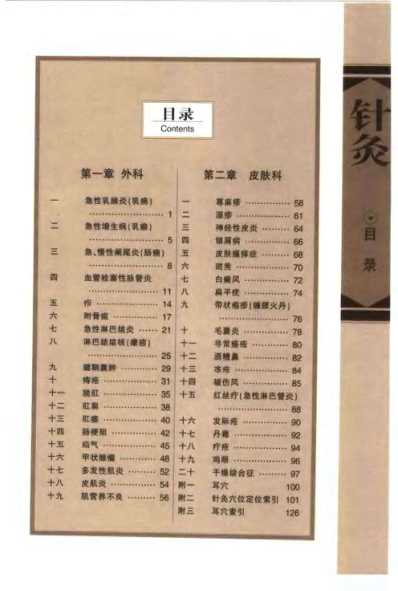 目录
Contents
第一章 外科
一 急性乳腺炎(乳痈)
……………… 1
二 急性增生病(乳癖)
……………… 5
三 急、慢性阑尾炎(肠痈)
……………… 8
四 血管栓塞性脉管炎
……………… 11
五 疖 ……………… 14
六 附骨疽 ………… 17
七 急性淋巴结炎 …… 21
八 淋巴结结核(瘰疬)
……………… 25
九 腱鞘囊肿 ……… 29
十 痔疮 …………… 31
十一 脱肛 …………… 35
十二 肛裂 …………… 38
十三 肛瘘 …………… 40
十四 肠梗阻 ………… 42
十五 疝气 …………… 45
十六 甲状腺瘤 ……… 48
十七 多发性肌炎 …… 52
十八 皮肌炎 ………… 54
十九 肌营养不良 …… 56
第二章 皮肤科
一 荨麻疹 ………… 58
二 湿疹 …………… 61
三 神经性皮炎 …… 64
四 银屑病 ………… 66
五 皮肤瘙痒症 …… 68
六 斑秃 …………… 70
七 白癜风 ………… 72
八 扁平疣 ………… 74
九 带状疱疹(缠腰火丹)
……………… 76
十 毛囊炎 ………… 78
十一 寻常痤疮 ……… 80
十二 酒糟鼻 ………… 82
十三 冻疮 …………… 84
十四 破伤风 ………… 85
十五 红丝疔(急性淋巴管炎)
……………… 88
十六 发际疮 ………… 90
十七 丹毒 …………… 92
十八 疔疮 …………… 94
十九 鸡眼 …………… 96
二十 干燥综合征 …… 97
附一 耳穴 100
附二 针灸穴位定位索引 101
附三 耳穴索引 126
针灸
目录